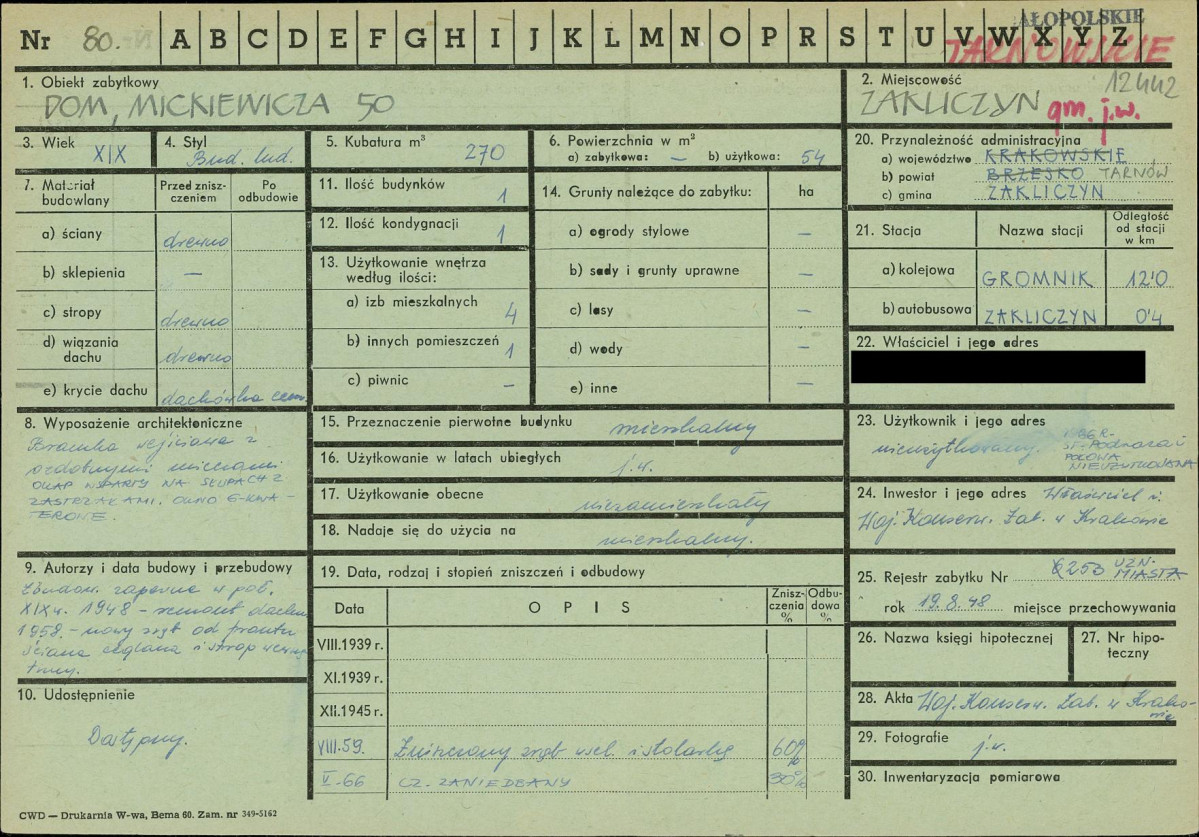 Nr 80. A B C D E F G H I J K L M N O P R S T U V W X Y Z
AŁOPOLSKIE
TARNOWSKIE
1. Obiekt zabytkowy
DOM, MICKIEWICZA 50
2. Miejscowość 12442
ZAKLICZYN gm. j.w.
3. Wiek XIX
4. Styl Bud. lud.
5. Kubatura m³ 270
6. Powierzchnia w m²
a) zabytkowa: — b) użytkowa: 54
20. Przynależność administracyjna
a) województwo KRAKOWSKIE
b) powiat BRZESKO TARNÓW
c) gmina ZAKLICZYN
7. Materiał budowlany
Przed zniszczeniem
Po odbudowie
a) ściany drewno
b) sklepienia —
c) stropy drewno
d) wiązania dachu drewno
e) krycie dachu dachówka cem.
11. Ilość budynków 1
12. Ilość kondygnacji 1
13. Użytkowanie wnętrza według ilości:
a) izb mieszkalnych 4
b) innych pomieszczeń 1
c) piwnic —
14. Grunty należące do zabytku: ha
a) ogrody stylowe —
b) sady i grunty uprawne —
c) lasy —
d) wody —
e) inne —
21. Stacja
Nazwa stacji
Odległość od stacji w km
a) kolejowa GROMNIK 12'0
b) autobusowa ZAKLICZYN 0'4
22. Właściciel i jego adres
8. Wyposażenie architektoniczne
Bramka wejściowa z
ozdobnymi mieczami
OKAP WSPARTY NA SŁUPACH Z
ZASTRZAŁAMI. OKNO 6-KWA-
TEROWE.
15. Przeznaczenie pierwotne budynku mieszkalny
16. Użytkowanie w latach ubiegłych j.w.
17. Użytkowanie obecne niezamieszkały
18. Nadaje się do użycia na mieszkalny.
23. Użytkownik i jego adres
nieużytkowany. 1966 R-
POŁOWA
NIEUŻYTKOWANA
24. Inwestor i jego adres Właściciel i.
Woj. Konserw. Zab. w Krakowie
9. Autorzy i data budowy i przebudowy
Zbudow. zapewne w poł.
XIX w. 1948 - remont dachu
1958. - nowy zrąb od frontu
ściana ceglana i strop wewnę
trzny.
19. Data, rodzaj i stopień zniszczeń i odbudowy
Data
OPIS
Zniszczenia %
Odbudowa %
VIII.1939 r.
XI.1939 r.
XII.1945 r.
VIII.59. Zniszczony zrąb wsch. i stolarkę 60%
V-66 CZ. ZANIEDBANY 30%
25. Rejestr zabytku Nr 253 UZN. MIASTA
rok 19.8.48 miejsce przechowywania
26. Nazwa księgi hipotecznej
27. Nr hipoteczny
10. Udostępnienie
Dostępny.
28. Akta Woj. Konserw. Zab. w Krako-
wie
29. Fotografie j.w.
30. Inwentaryzacja pomiarowa
CWD — Drukarnia W-wa, Bema 60. Zam. nr 349-5162